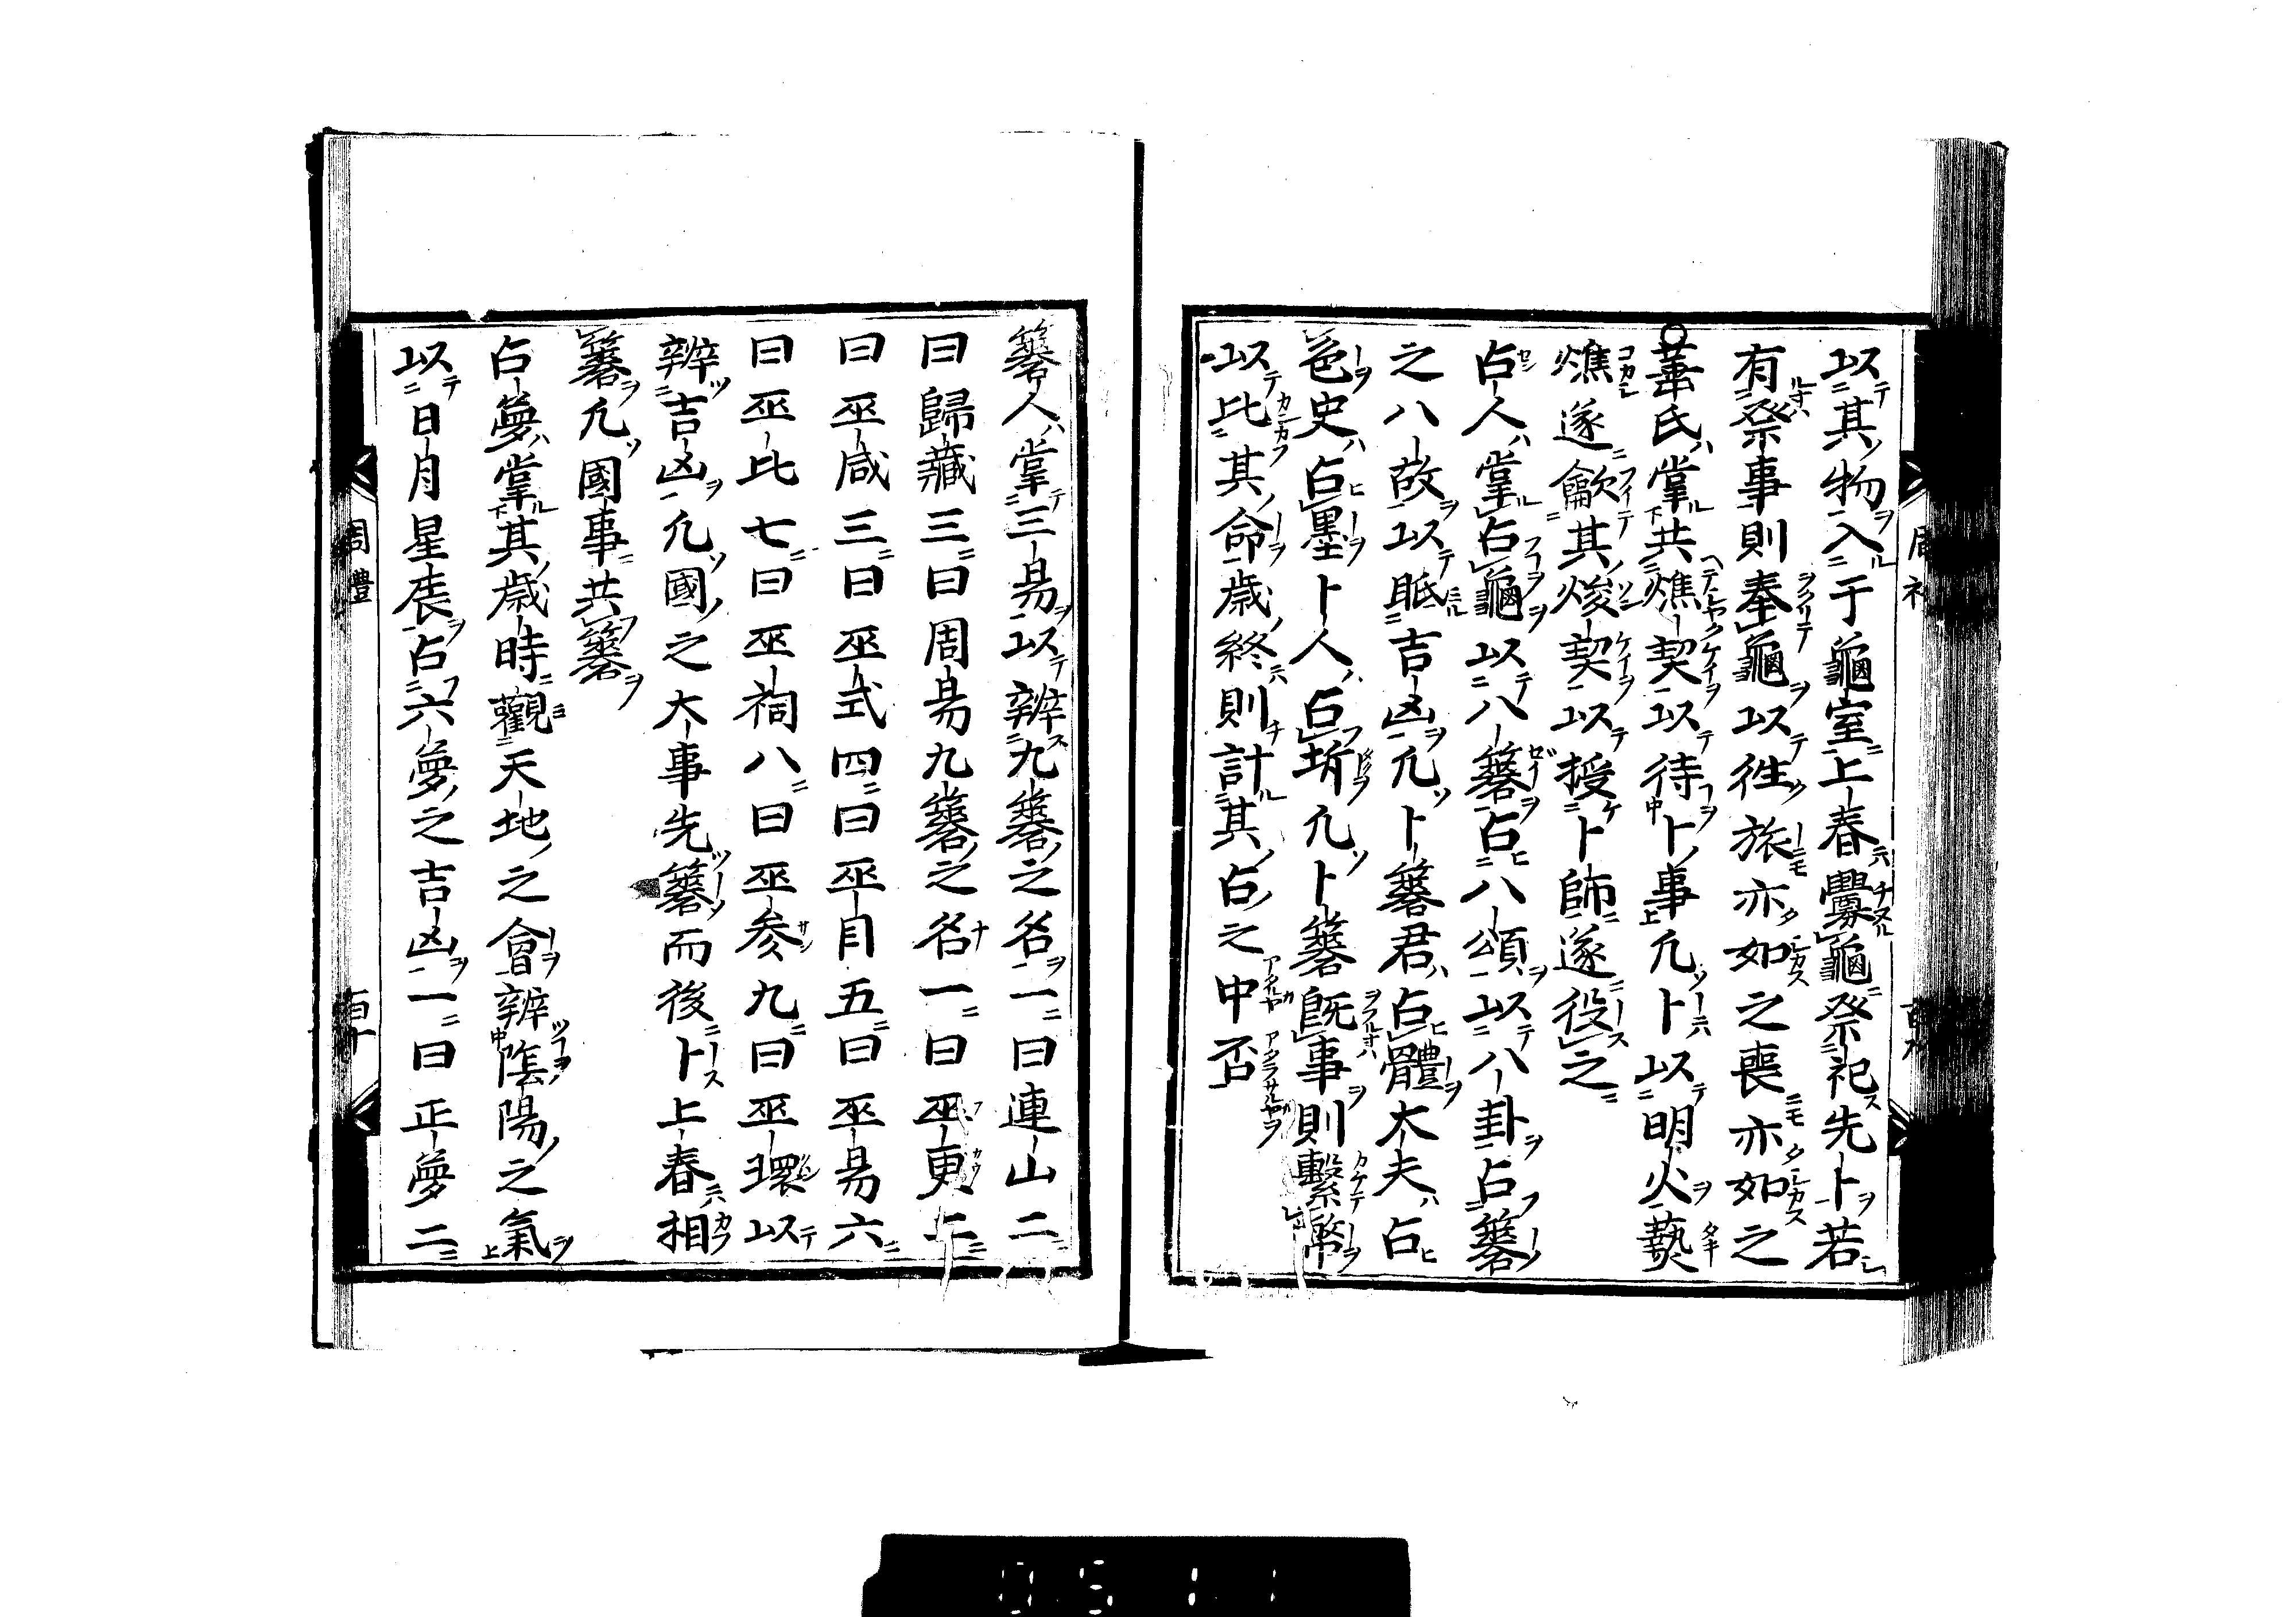 以其物入于龜室上春釁龜祭祀先卜若
有祭事則奉龜以徃旅亦如之喪亦如之
菙氏掌共燋契以待卜事凢卜以明火爇
燋遂龡其焌契以授卜師遂役之
占人掌占龜以八簭占八頌以八卦占簭
之八故以眡吉凶凢卜簭君占體大夫占
色史占墨卜人占坼凢卜簭旣事則繫幣
以比其命歳終則計其占之中否
簭人掌三昜以辨九簭之名一曰連山二
曰歸藏三曰周昜九簭之名一曰巫更二
曰巫咸三曰巫式四曰巫目五曰巫昜六
曰巫比七曰巫祠八曰巫参九曰巫環以
辨吉凶凢國之大事先簭而後卜上春相
簭凢國事共簭
占夢掌其歳時觀天地之會辨陰陽之氣
以日月星辰占六夢之吉凶一曰正夢二
周禮